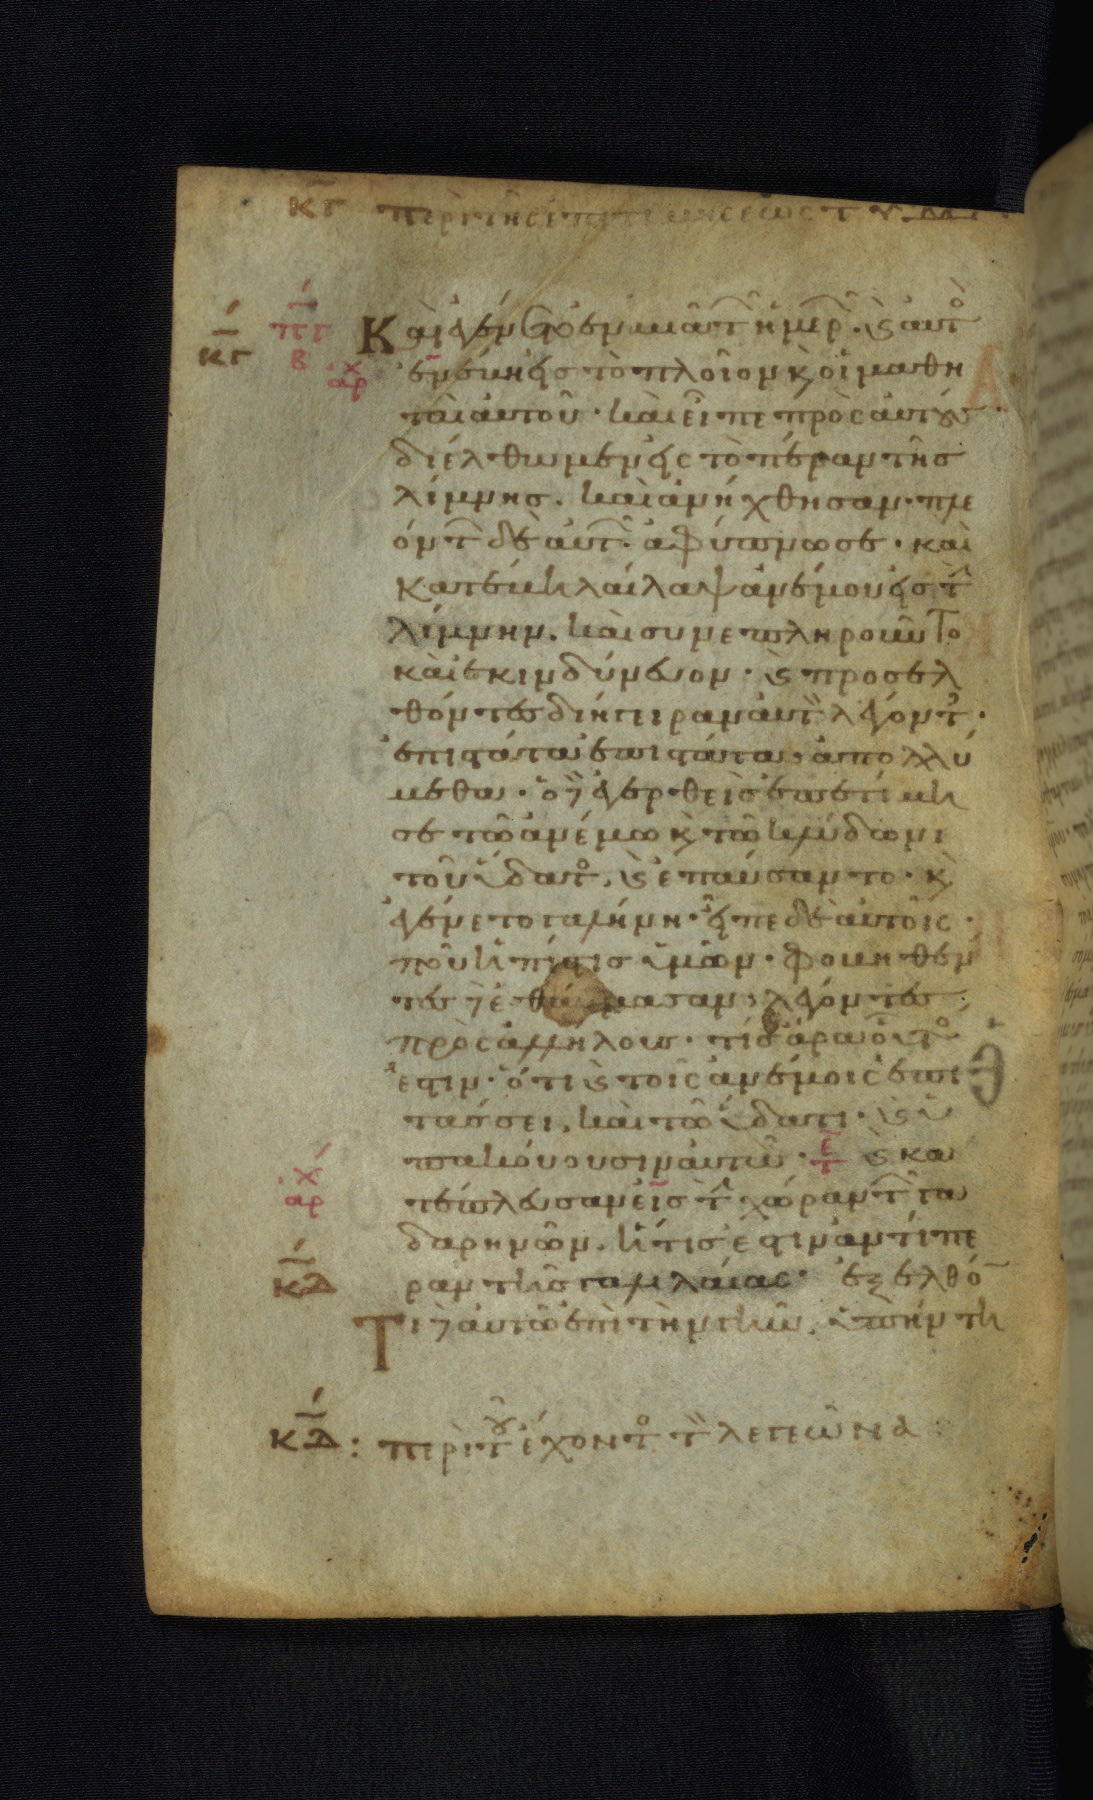 κγ περὶ τῆς ἐπιτιμήσεως τ υδα
κγ πγ β Καὶ ἐγένετο ἐν μιᾶ τ ἡμερ. ϗ αυτ
ἀρχ ἐνέβη εἰς τὸ πλοῖον ϗ οἱ μαθη
ταὶ αυτοῦ· καὶ εἶπε πρὸς αυτούς
διέλθωμεν εἰς τὸ πέραν τῆς
λίμνης. καὶ ἀνήχθησαν· πλε
όντ δὲ αὐτ ἀφύπνωσε· καὶ
κατέβη λαῖλαψ ἀνέμου εἰς τ
λίμνην. καὶ συνεπληροῦντο
καὶ ἐκινδύνευον· ϗ προσελ
θόντες διήγειραν αὐτ λέγοντ·
ἐπιστάτα ἐπιστάτα ἀπολλύ
μεθα· ὁ δὲ ἐγερθεὶς ἐπετίμη
σε τῶ ἀνέμω ϗ τῶ κλύδωνι
τοῦ ὕδατ. ϗ ἐπαύσαντο· ϗ
ἐγένετο γαλήνη· εἶπε δὲ αὐτοῖς·
ποῦ ἡ πίστις ὑμῶν· φοβηθέν
τες δὲ ἐθαύμασαν λέγοντες
πρὸς ἀλλήλους· τίς ἄρα οὗτ
ἐστιν· ὅτι ϗ τοῖς ἀνέμοις ἐπι
τάσσει, καὶ τῶ ὕδατι· ϗ ὑ
πακούουσιν αὐτῶ· τε ϗ κα
ἀρχ τέπλευσαν εἰς τ χώραν τ γα
δαρηνῶν. ἥτις ἐστιν ἀντίπε
κδ ραν τῆς γαλιλαίας· ἐξελθό
Τι δὲ αὐτῶ ἐπὶ τὴν γῆν, ὑπήντη
κδ: περὶ τοῦ ἔχοντ τ λεγεῶνα: